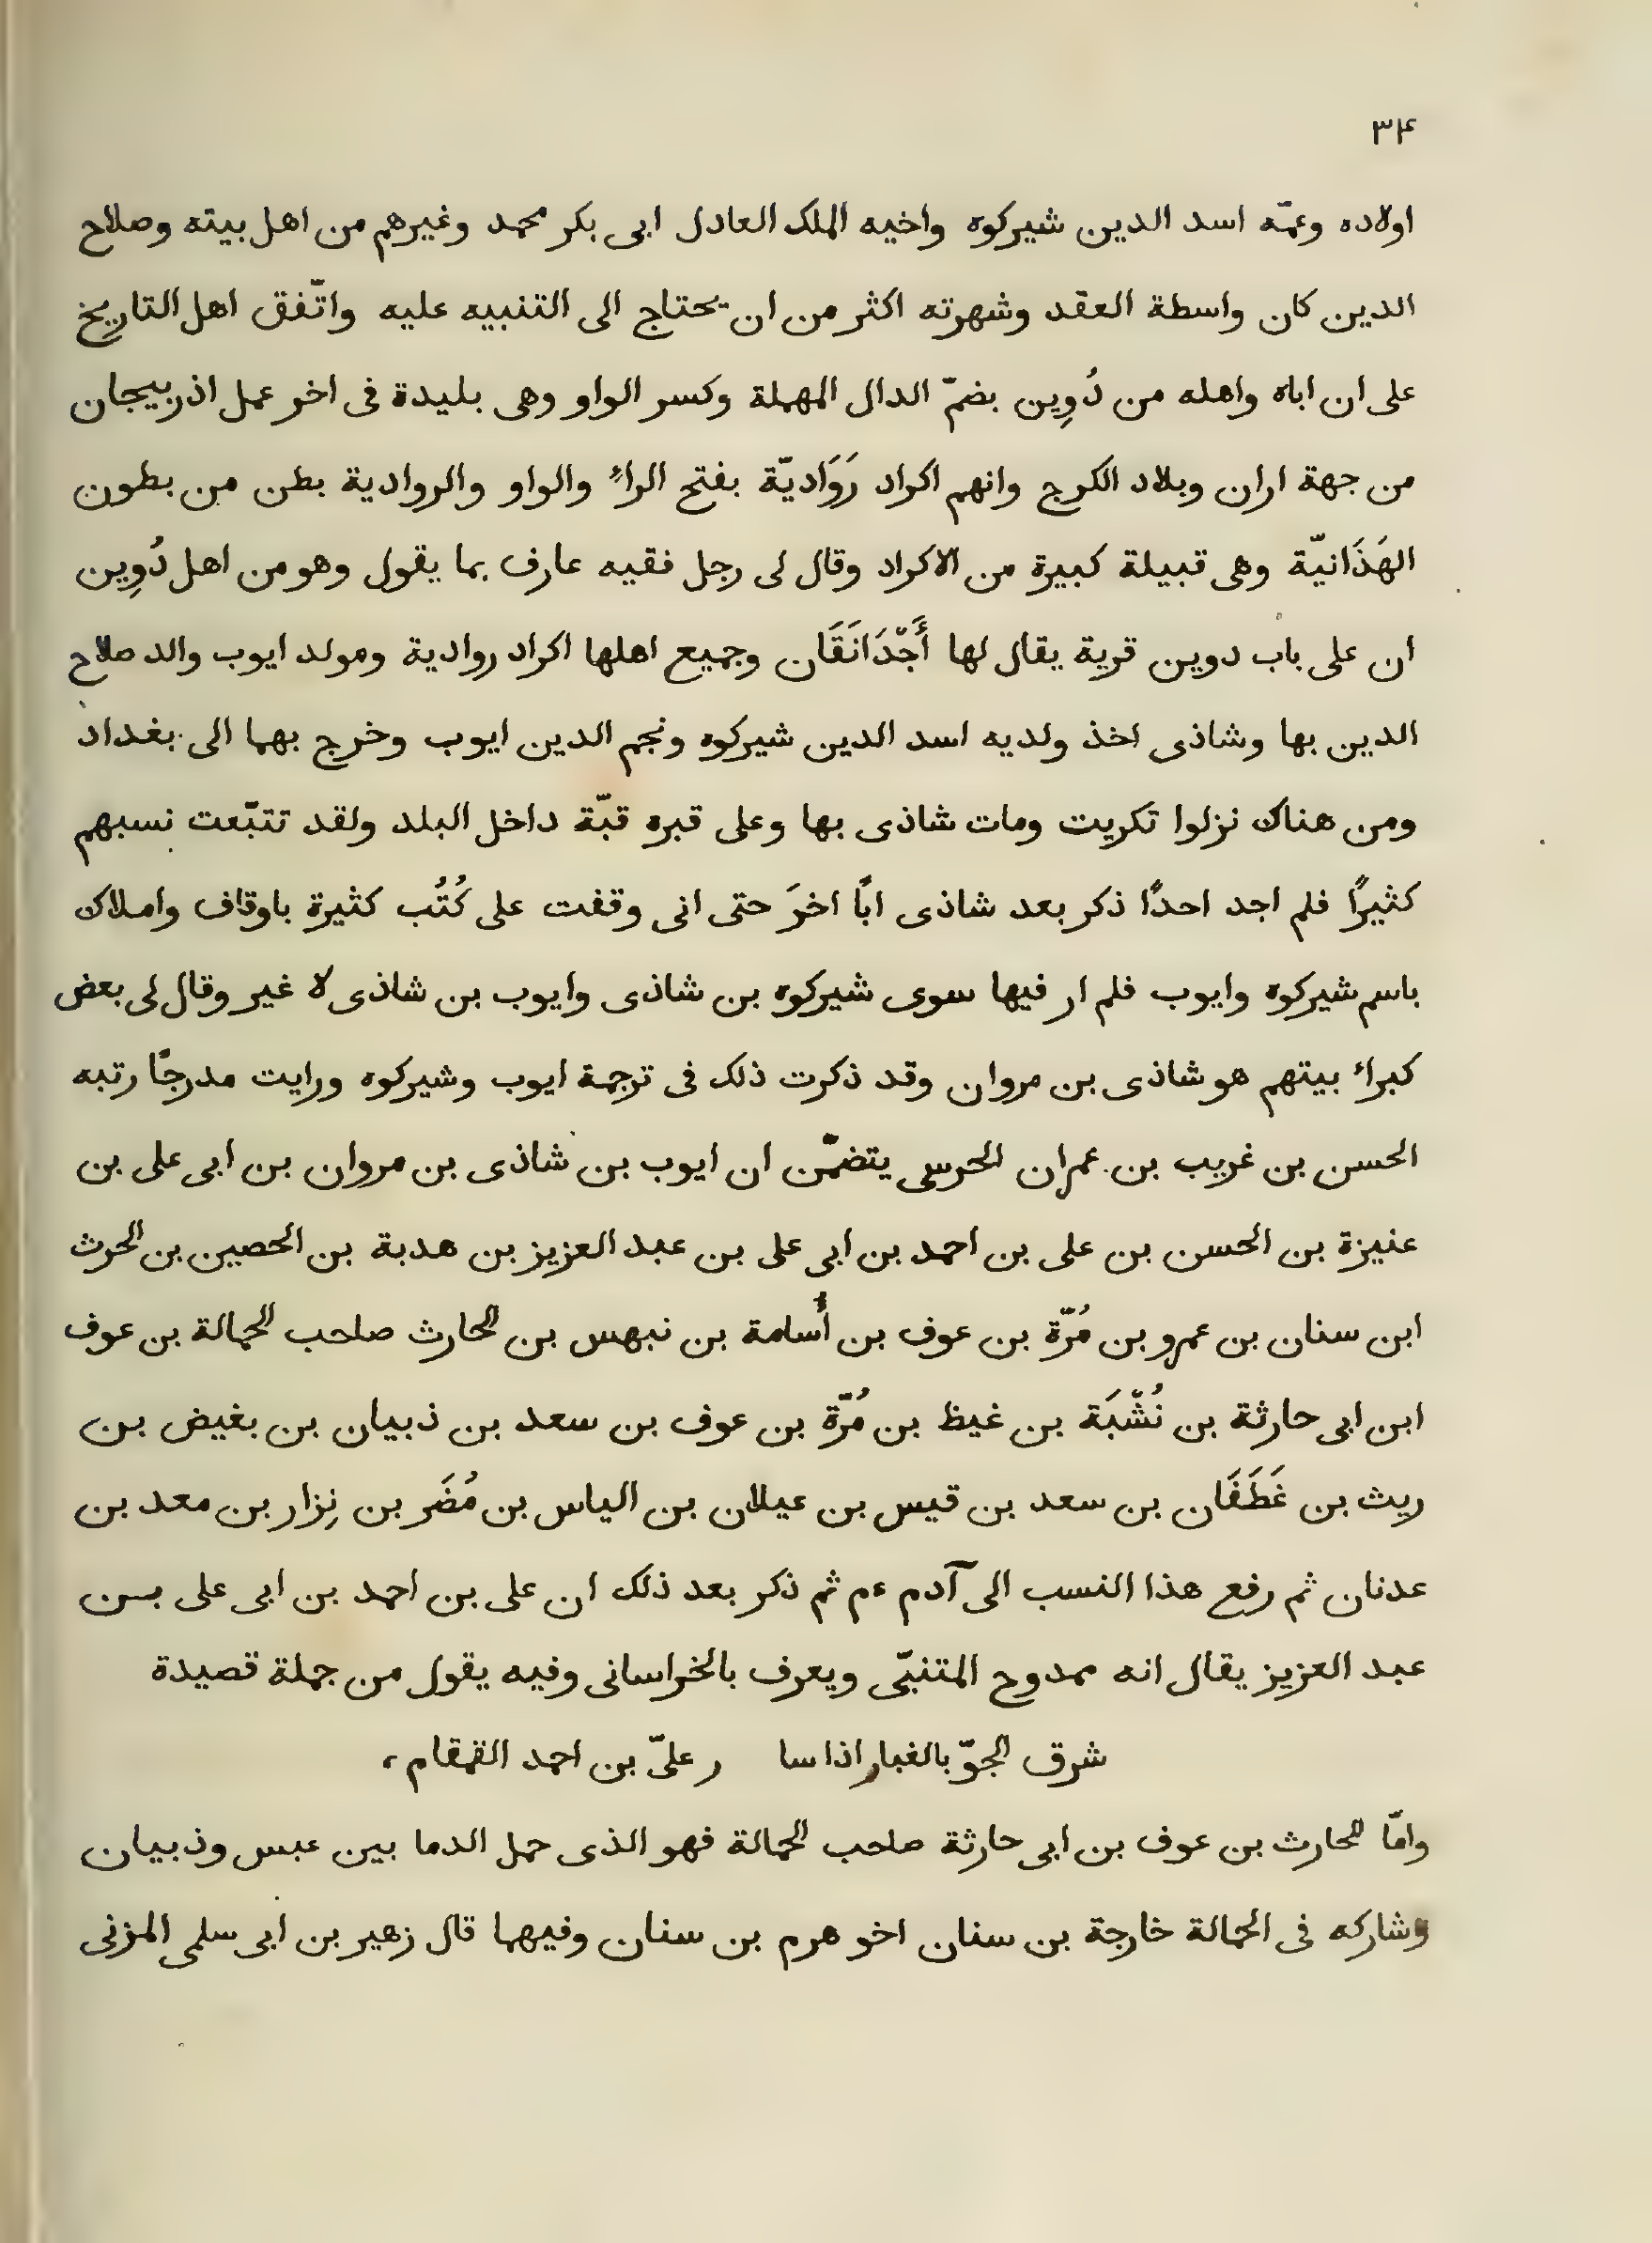 ٣٤
اولاده وعمّه اسد الدين شيركوه واخيه الملك العادل ابى بكر محمد وغيرهم من اهل بيته وصلاح
الدين كان واسطة العقد وشهرته اكثر من ان يحتاج الى التنبيه عليه واتّفق اهل التاريخ
على ان اباه واهله من دُوِين بضمّ الدال المهملة وكسر الواو وهى بليدة فى اخر عمل اذربيجان
من جهة اران وبلاد الكرج وانهم اكراد رَوَاديّة بفتح الراء والواو والروادية بطن من بطون
الهَذَانيّة وهى قبيلة كبيرة من الاكراد وقال لى رجل فقيه عارف بما يقول وهو من اهل دُوِين
ان على باب دوين قرية يقال لها أَجْدَانَقَان وجميع اهلها اكراد روادية ومولد ايوب والد صلاح
الدين بها وشاذى اخذ ولديه اسد الدين شيركوه ونجم الدين ايوب وخرج بهما الى بغداد
ومن هناك نزلوا تكريت ومات شاذى بها وعلى قبره قبّة داخل البلد ولقد تتبّعت نسبهم
كثيرًا فلم اجد احدًا ذكر بعد شاذى ابًا اخرَ حتى انى وقفت على كُتُب كثيرة باوقاف واملاك
باسم شيركوه وايوب فلم ار فيها سوى شيركوه بن شاذى وايوب بن شاذى لا غير وقال لى بعض
كبراء بيتهم هو شاذى بن مروان وقد ذكرت ذلك فى ترجمة ايوب وشيركوه ورايت مدرجًا رتبه
الحسن بن غريب بن عمران الحرسى يتضمّن ان ايوب بن شاذى بن مروان بن ابى على بن
عنيزة بن الحسن بن على بن احمد بن ابى على بن عبد العزيز بن هدبة بن الحصين بن الحرث
ابن سنان بن عمرو بن مُرّة بن عوف بن أُسامة بن نبهس بن الحارث صاحب الحمالة بن عوف
ابن ابى حارثة بن نُشْبَة بن غيظ بن مُرّة بن عوف بن سعد بن ذبيان بن بغيض بن
ريث بن غَطَفَان بن سعد بن قيس بن عيلان بن الياس بن مُضَر بن نِزار بن معد بن
عدنان ثم رفع هذا النسب الى آدم ءم ثم ذكر بعد ذلك ان على بن احمد بن ابى على بسن
عبد العزيز يقال انه ممدوح المتنبّى ويعرف بالخراسانى وفيه يقول من جملة قصيدة
شرق الجوّ بالغبار اذا سا ر علىّ بن احمد القمقام،
وامّا الحارث بن عوف بن ابى حارثة صاحب الحمالة فهو الذى حمل الدما بين عبس وذبيان
وشاركه فى الحمالة خارجة بن سنان اخو هرم بن سنان وفيهما قال زهير بن ابى سلمى المزنى